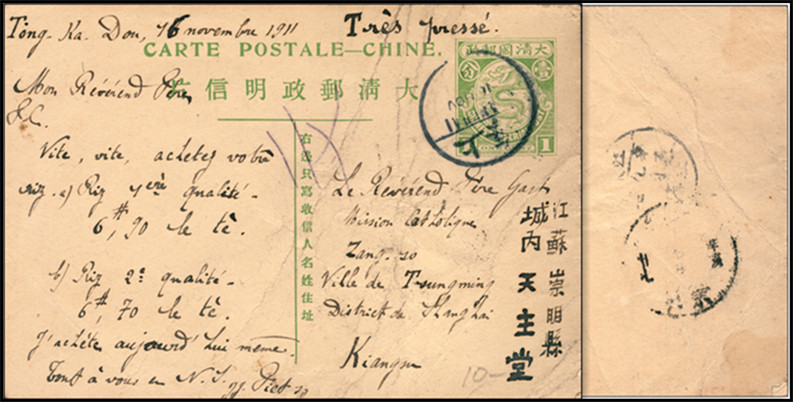 Tong-Ka-Dou, 16 novembre 1911
Très pressé.
CARTE POSTALE—CHINE.
大清國郵政
壹
分
1
大清郵政明信片
Mon Révérend Père,
P.C.
Vite, vite, achetez votre
riz. a) Riz 1ère qualité.
6#, 90 le tè.
b) Riz 2e qualité.
6#, 70 le tè.
J'achète aujourd'hui même.
Tout à vous en N.S.
右邊只寫收信人名姓住址
Le Révérend Père
Mission Catholique
Zang-so
Ville de Tsungming
District de Shanghai
Kiangsu
江蘇崇明縣
城內天主堂
10-